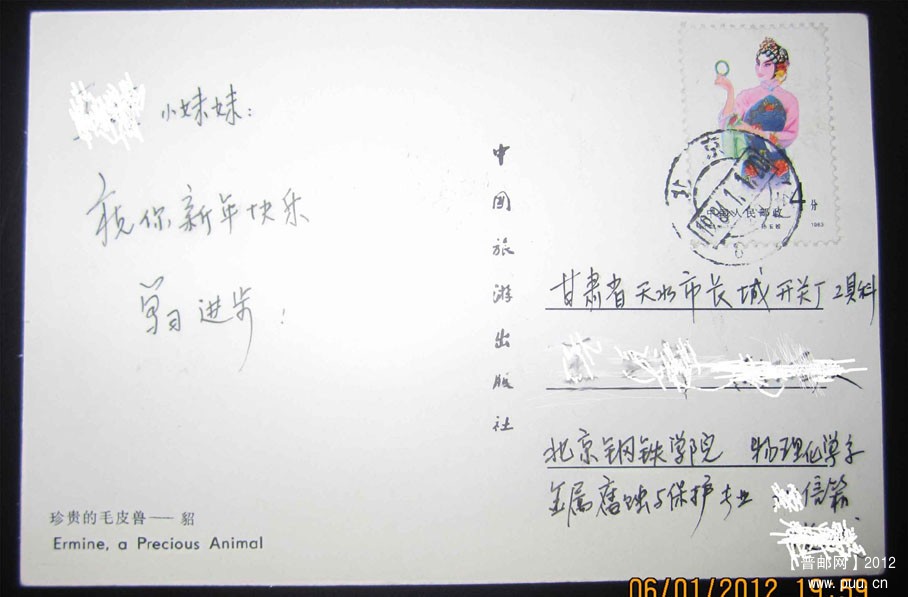 小妹妹:
祝你新年快乐
学习进步!
珍贵的毛皮兽—— 貂
Ermine, a Precious Animal
中国旅游出版社
北京
4分
中国人民邮政
1983
甘肃省天水市长城开关厂工具科
北京钢铁学院 物理化学系
金属腐蚀与保护专业 信箱
【普邮网】2012
www.puu.cn
06/01/2012 19:59